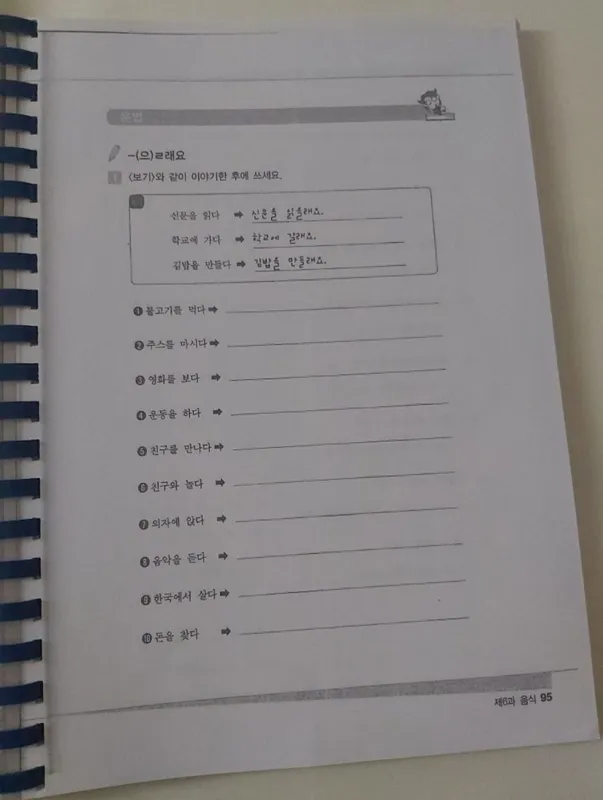 문법
-(으)ㄹ래요
1 〈보기〉와 같이 이야기한 후에 쓰세요.
신문을 읽다 ➡ 신문을 읽을래요.
학교에 가다 ➡ 학교에 갈래요.
김밥을 만들다 ➡ 김밥을 만들래요.
❶ 불고기를 먹다 ➡
❷ 주스를 마시다 ➡
❸ 영화를 보다 ➡
❹ 운동을 하다 ➡
❺ 친구를 만나다 ➡
❻ 친구와 놀다 ➡
❼ 의자에 앉다 ➡
❽ 음악을 듣다 ➡
❾ 한국에서 살다 ➡
❿ 돈을 찾다 ➡
제6과 음식 95